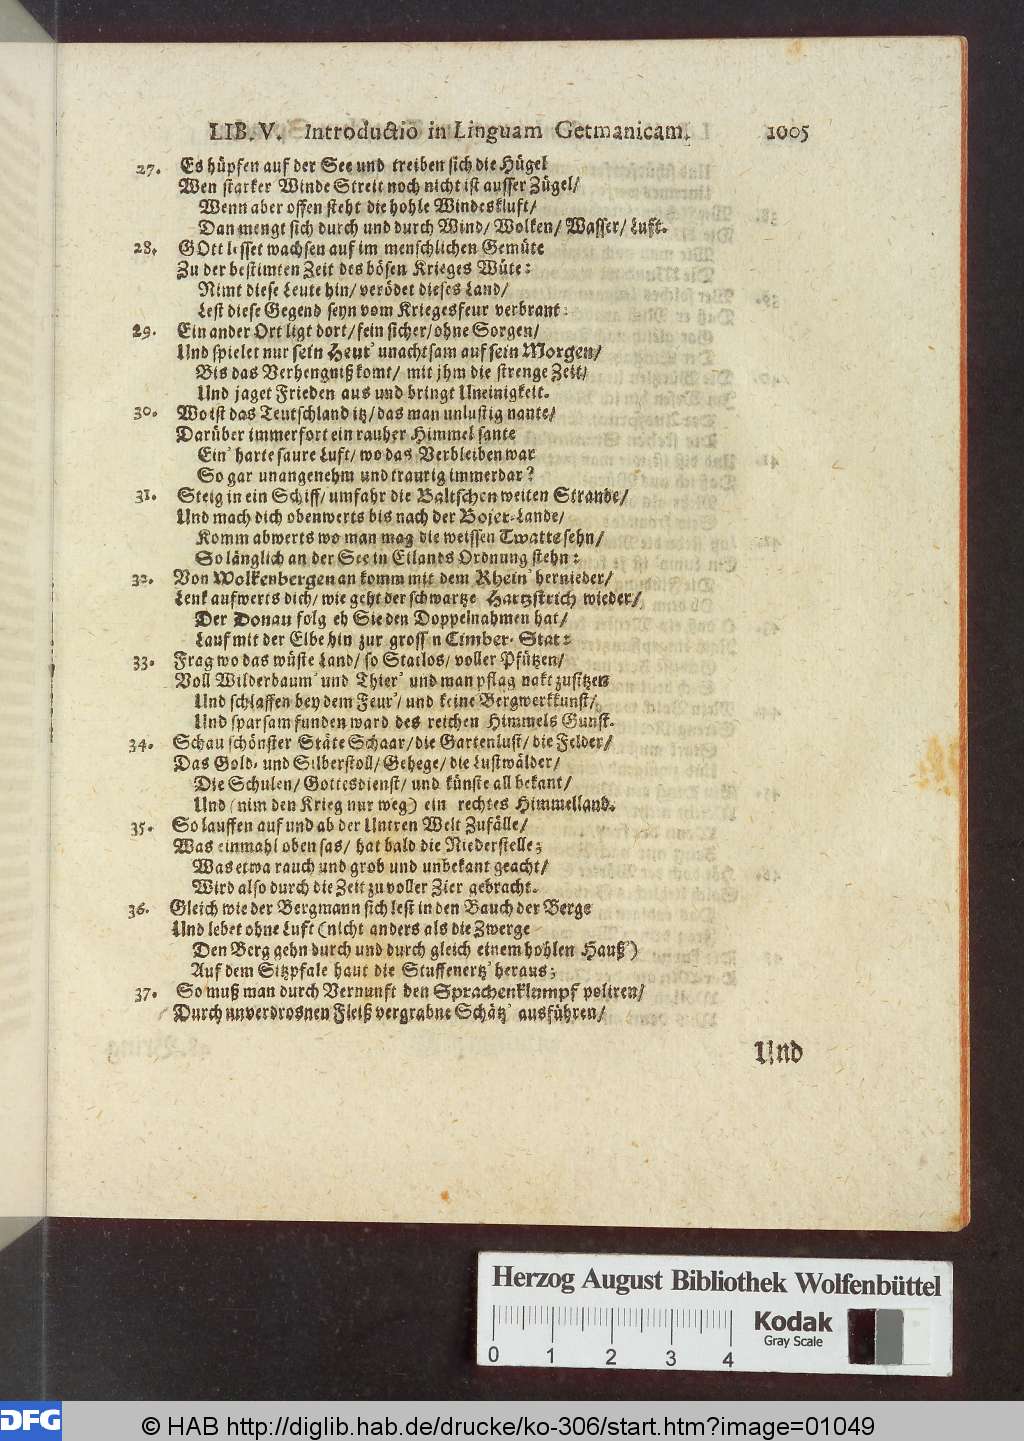 LIB. V. Introductio in Linguam Getmanicam. 1005
27. Es hüpfen auf der See und treiben sich die Hügel
Wen starker Winde Streit noch nicht ist ausser Zügel/
Wenn aber offen steht die hohle Windeskluft/
Dan mengt sich durch und durch Wind/ Wolken/ Wasser/ Luft.
28. GOtt lesset wachsen auf im menschlichen Gemüte
Zu der bestimten Zeit des bösen Krieges Wüte:
Nimt diese Leute hin/ verödet dieses Land/
Lest diese Gegend seyn vom Kriegesfeur verbrant:
29. Ein ander Ort ligt dort/ fein sicher/ ohne Sorgen/
Und spielet nur sein Heut' unachtsam auf sein Morgen/
Bis das Verhengniß komt/ mit jhm die strenge Zeit/
Und jaget Frieden aus und bringt Uneinigkeit.
30. Wo ist das Teutschland itz/ das man unlustig nante/
Darüber immerfort ein rauher Himmel sante
Ein' harte saure Luft/ wo das Verbleiben war
So gar unangenehm und traurig immerdar?
31. Steig in ein Schiff/ umfahr die Baltschen weiten Strande/
Und mach dich obenwerts bis nach der Bojer-Lande/
Komm abwerts wo man mag die weissen Twatte sehn/
So länglich an der See in Eilands Ordnung stehn:
32. Von Wolkenbergen an komm mit dem Rhein' hernieder/
Lenk aufwerts dich/ wie geht der schwartze Hartzstrich wieder/
Der Donau folg eh Sie den Doppelnahmen hat/
Lauf mit der Elbe hin zur gross'n Cimber- Stat:
33. Frag wo das wüste Land/ so Statlos/ voller Pfützen/
Voll Wilderbaum' und Thier' und man pflag nakt zusitzen
Und schlaffen bey dem Feur'/ und keine Bergwerkkunst/
Und sparsam funden ward des reichen Himmels Gunst.
34. Schau schönster Städte Schaar/ die Gartenlust/ die Felder/
Das Gold- und Silberstoll/ Gehege/ die Lustwälder/
Die Schulen/ Gottesdienst/ und künste all bekant/
Und (nim den Krieg nur weg) ein rechtes Himmelland.
35. So lauffen auf und ab der Untren Welt Zufälle/
Was einmahl oben sas/ hat bald die Niederstelle;
Was etwa rauch und grob und unbekant geacht/
Wird also durch die Zeit zu voller Zier gebracht.
36. Gleich wie der Bergmann sich lest in den Bauch der Berge
Und lebet ohne Luft (nicht anders als die Zwerge
Den Berg gehn durch und durch gleich einem hohlen Hauß')
Auf dem Sitzpfale haut die Stuffenertz' heraus;
37. So muß man durch Vernunft den Sprachenklumpf poliren/
Durch unverdrosnen Fleiß vergrabne Schätz' ausführen/
Und
Herzog August Bibliothek Wolfenbüttel
Kodak
Gray Scale
0 1 2 3 4
DFG
© HAB http://diglib.hab.de/drucke/ko-306/start.htm?image=01049